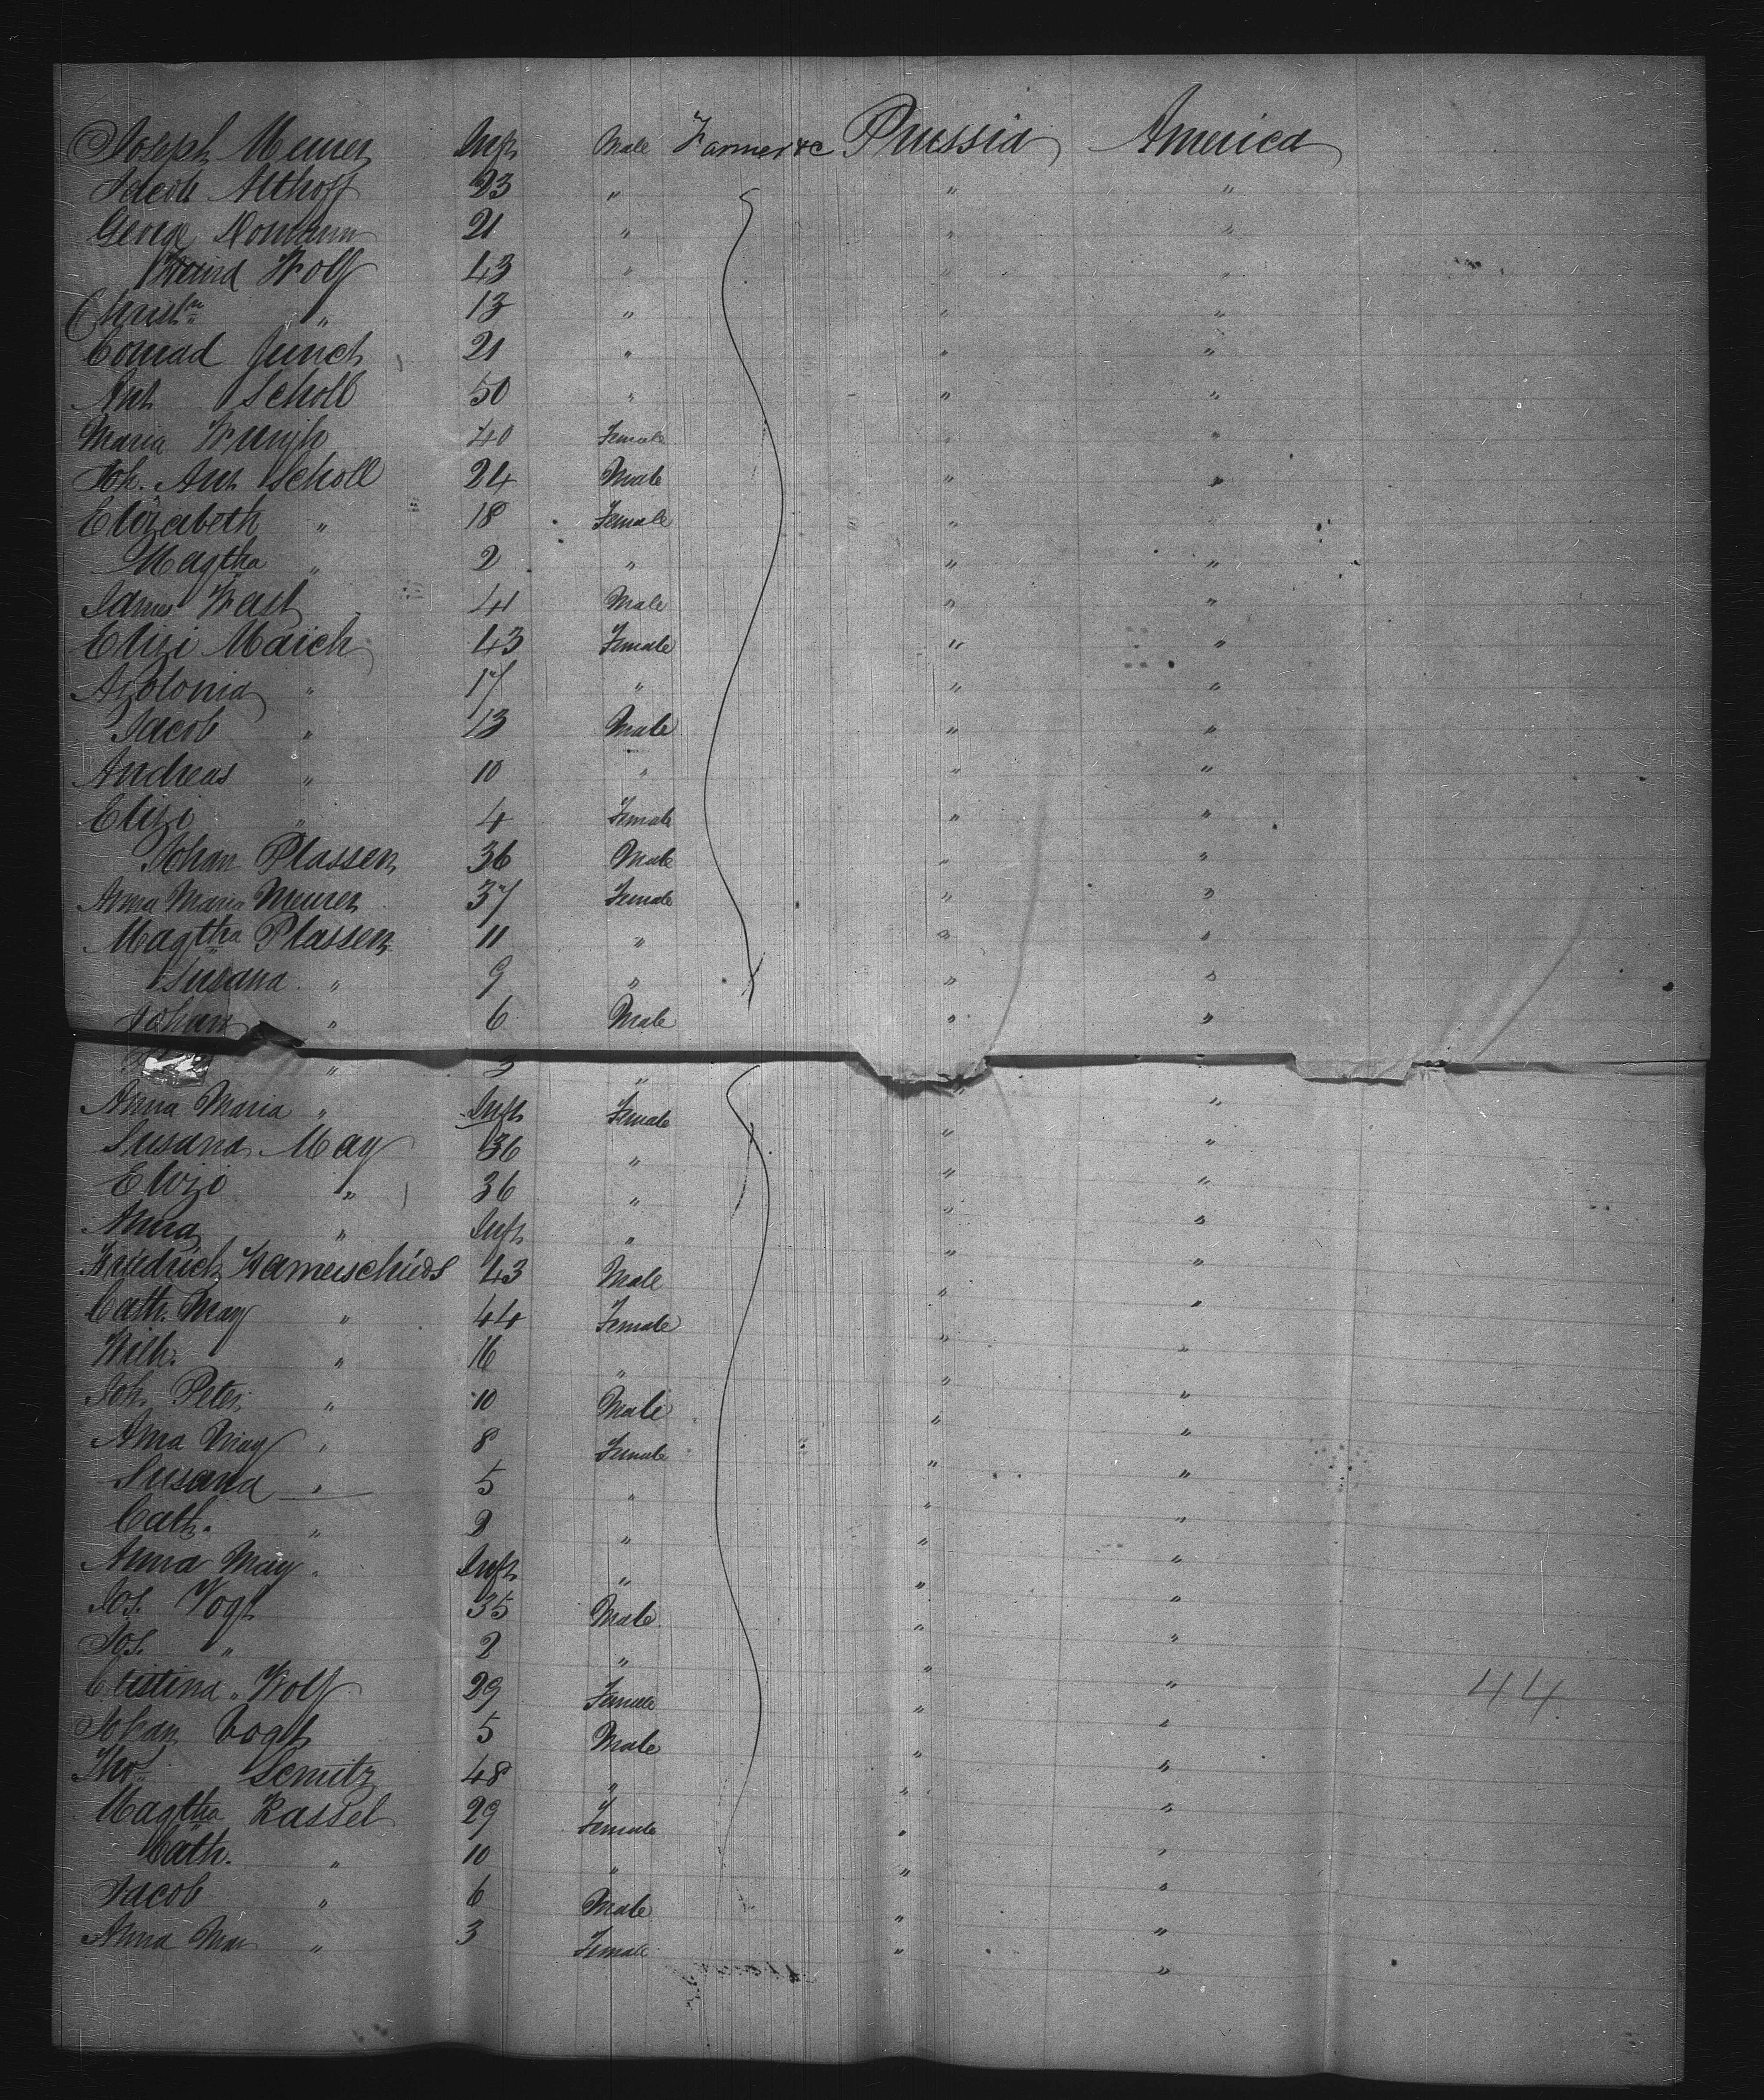 Joseph Meurer Inft Male Farmer &c Prussia America
Jacob Althoff 23 " " "
George Normann 21 " " "
Wolf 43 " " "
Christn " 13 " " "
Conrad Junck 21 " " "
Ant Scholl 50 " " "
Maria 40 Female " "
Joh. Ant Scholl 24 Male " "
Elizabeth " 18 Female " "
Magtha " 2 " " "
James Wast 41 Male " "
Elizi Maich 43 Female " "
Apolonia " 17 " " "
Jacob " 13 Male " "
Andreas " 10 " " "
Elizi " 4 Female " "
Johan Plassen 36 Male " "
Anna Maria Meurer 37 Female " "
Magtha Plassen 11 " " "
Susana " 9 " " "
Johan " 6 Male " "
" 3 " " "
Anna Maria " Inft Female " "
Susana May 36 " " "
Elizi " 36 " " "
Anna " Inft " " "
Friedrich Hamerschids 43 Male " "
Cath. May " 44 Female " "
Wilh. " 16 " " "
Joh. Peter " 10 Male " "
Anna May " 8 Female " "
Susana " 5 " " "
Cath. " 2 " " "
Anna May " Inft " " "
Jos. Vogt 35 Male " "
Jos. " 2 " " "
Cristina Wolf 29 Female " " 44
Johan Vogt 5 Male " "
Thos Scmitz 48 " " "
Magtha Kassel 29 Female " "
Cath. " 10 " " "
Jacob " 6 Male " "
Anna Mar " 3 Female " "